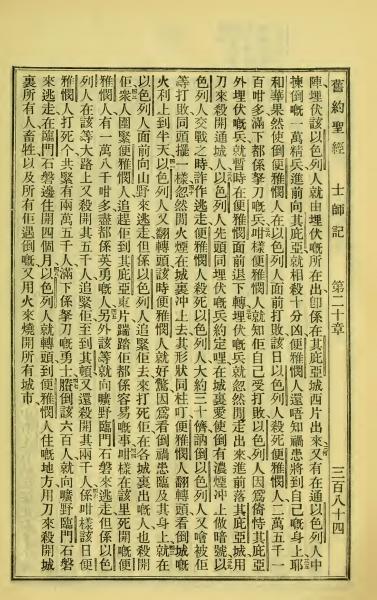 舊約聖經　士師記　第二十章　三百八十四
陣埋伏該以色列人就由埋伏嘅所在出卽係在其庇亞城西片出來又有在通以色列人中
揀倒嘅一萬精兵進前向其庇亞就相殺十分凶便雅憫人還唔知禍患將到自己嘅身上耶
和華果然使倒便雅憫人在以色列人面前打敗該日以色列人殺死便雅憫人二萬五千一
百咁多滿下都係拏刀嘅兵咁樣便雅憫人就知佢自己受打敗以色列人因爲倚恃其庇亞
外埋伏嘅兵就暫時在便雅憫面前退下轉埋伏嘅兵就忽然閒走出來進前落其庇亞城用
刀來殺開通城人以色列人先頭同埋伏嘅兵約定哩在城裏愛使倒有濃烟沖上做暗號以
色列人交戰之時詐作逃走便雅憫人殺死以色列人大約三十儕訥倒以色列人又噲被佢
等打敗同頭擺一樣忽然閒火煙在城裏沖上去其形狀同柱叮便雅憫人翻轉頭看倒城嘅
火利上到半天以色列人又翻轉頭該時便雅憫人就好驚因爲看倒禍患臨及其身上就在
以色列人面前向山野來逃走但係以色列人追緊佢去來打死佢在各城裏出嘅人也殺開
佢衆人圍緊便雅憫人追趕佢到其庇亞東片踹踏佢都係容易嘅事咁樣在該里死開嘅便
雅憫人有一萬八千咁多盡都係英勇嘅人另外該等就向曠野臨門石磐來逃走但係以色
列人在該等大路上又殺開其五千人追緊佢至到其頓又還殺開其兩千人係咁樣該日便
雅憫人打死个共聚有兩萬五千人滿下係拏刀嘅勇士賸倒該六百人就向曠野臨門石磐
來逃走在臨門石磐邊住開四個月以色列人就轉頭到便雅憫人住嘅地方用刀來殺開城
裏所有人畜牲以及所有佢遇倒嘅又用火來燒開所有城市